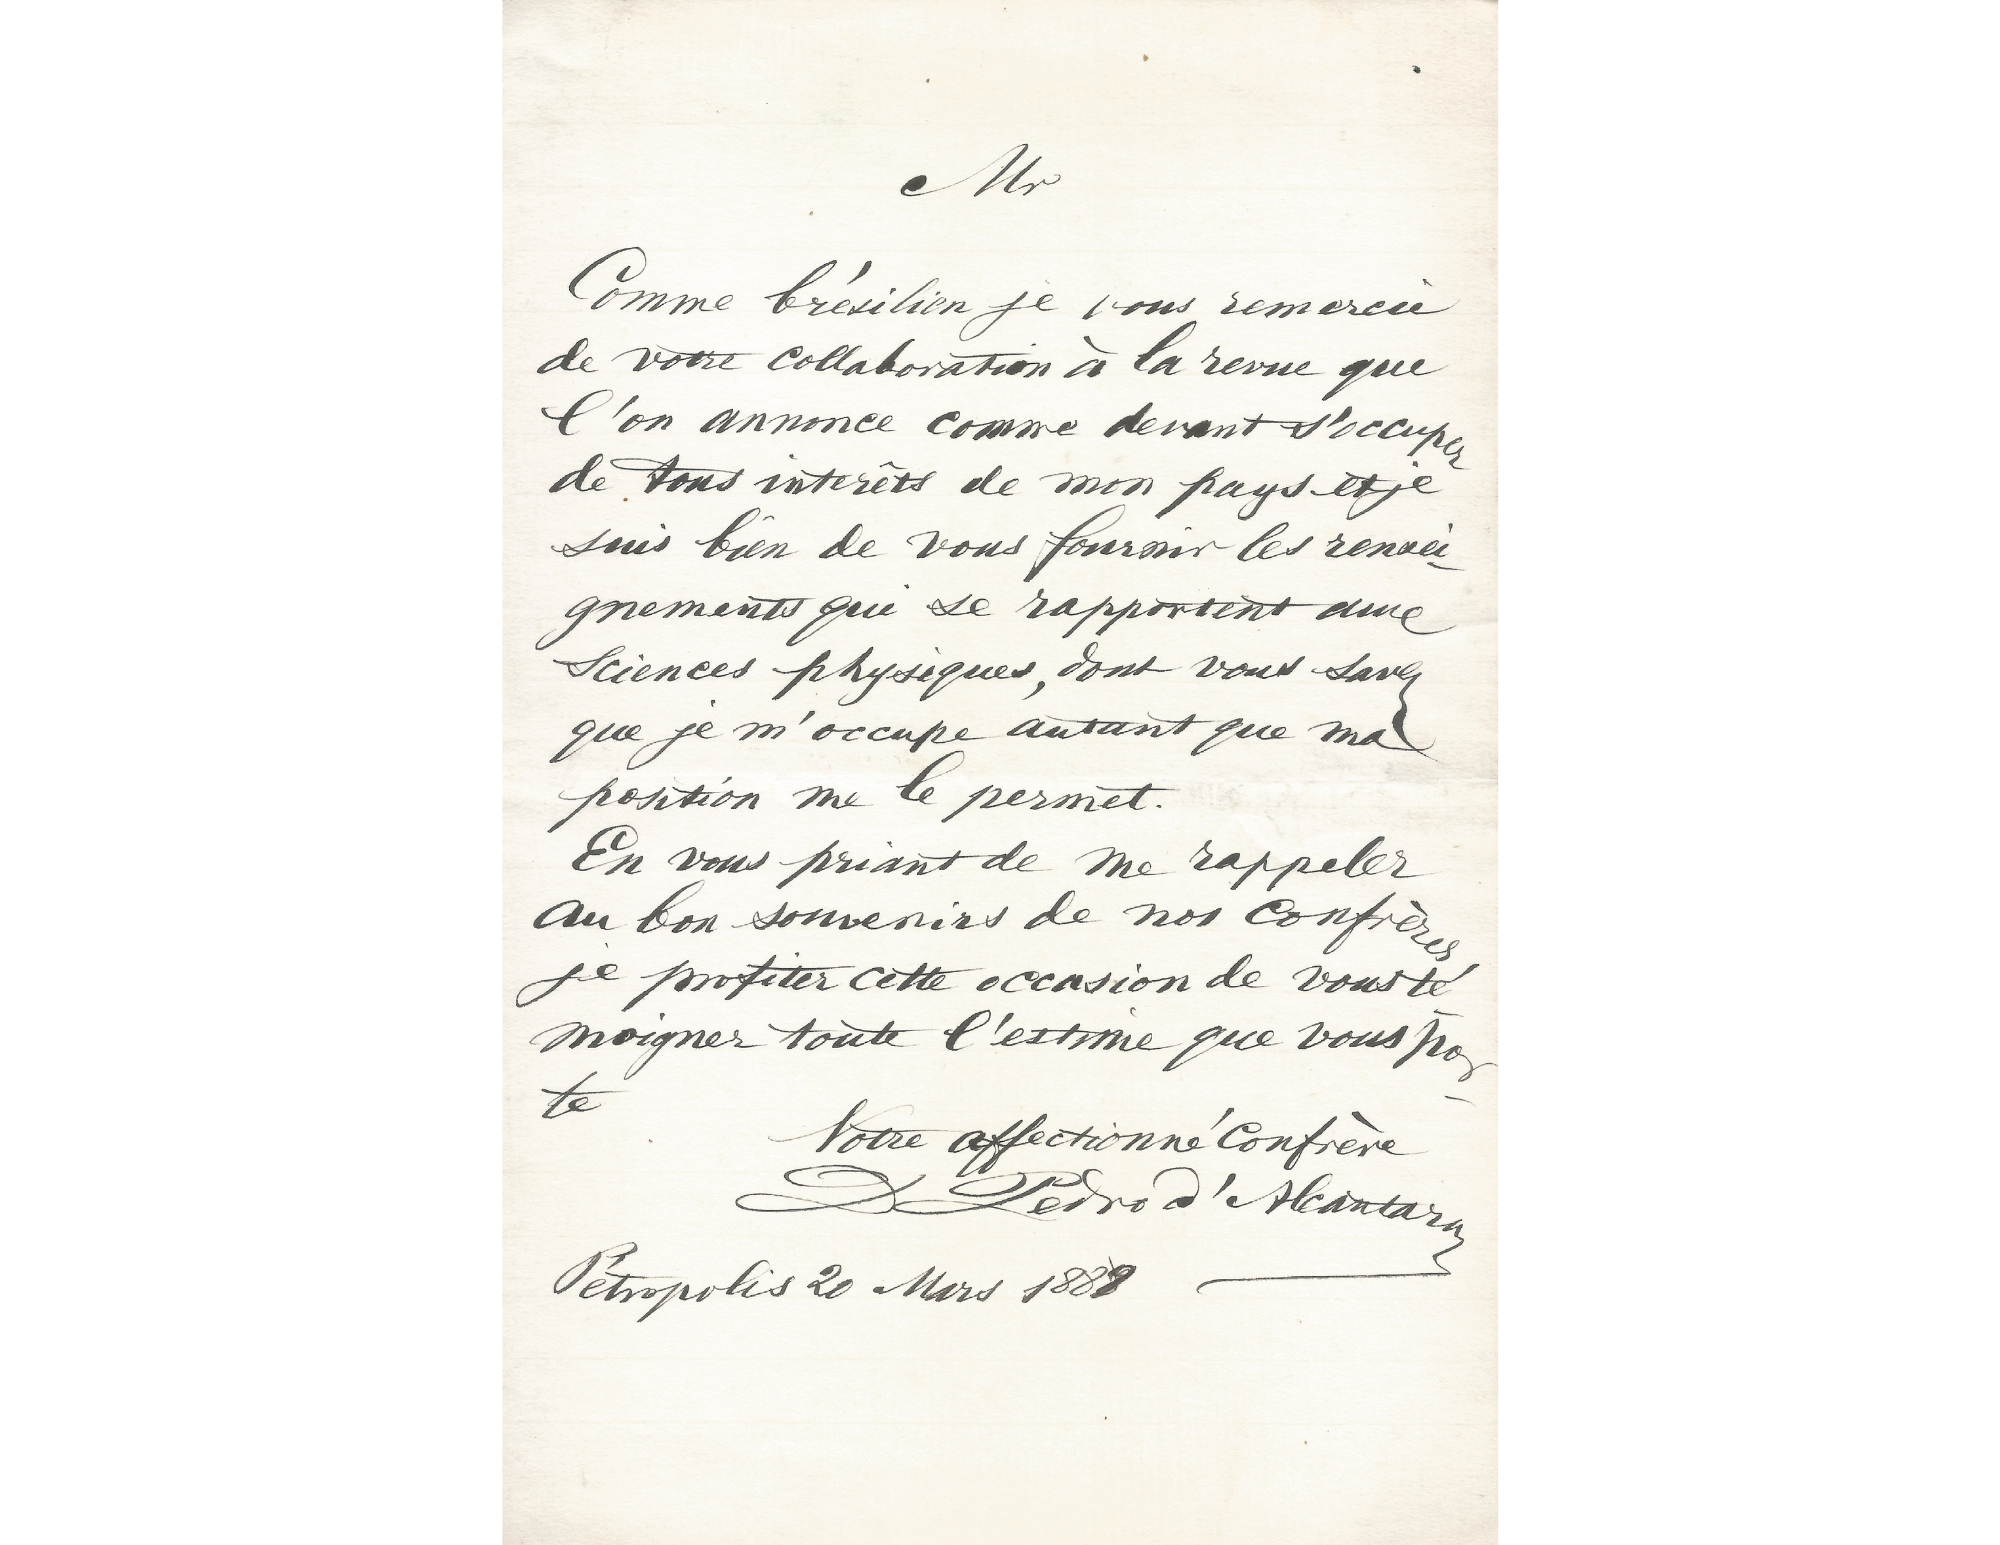 Mr
Comme brésilien je vous remercie
de votre collaboration à la revue que
l'on annonce comme devant s'occuper
de tous interêts de mon pays et je
suis bien de vous fournir les rensei-
gnements qui se rapportent aux
sciences physiques, dont vous savez
que je m'occupe autant que ma
position me le permet.
En vous priant de me rappeler
au bon souvenirs de nos confrères
je profiter cette occasion de vous té
moigner toute l'estime que vous por-
te
Votre affectionné Confrère
D. Pedro d'Alcantara
Petropolis 20 Mars 1889